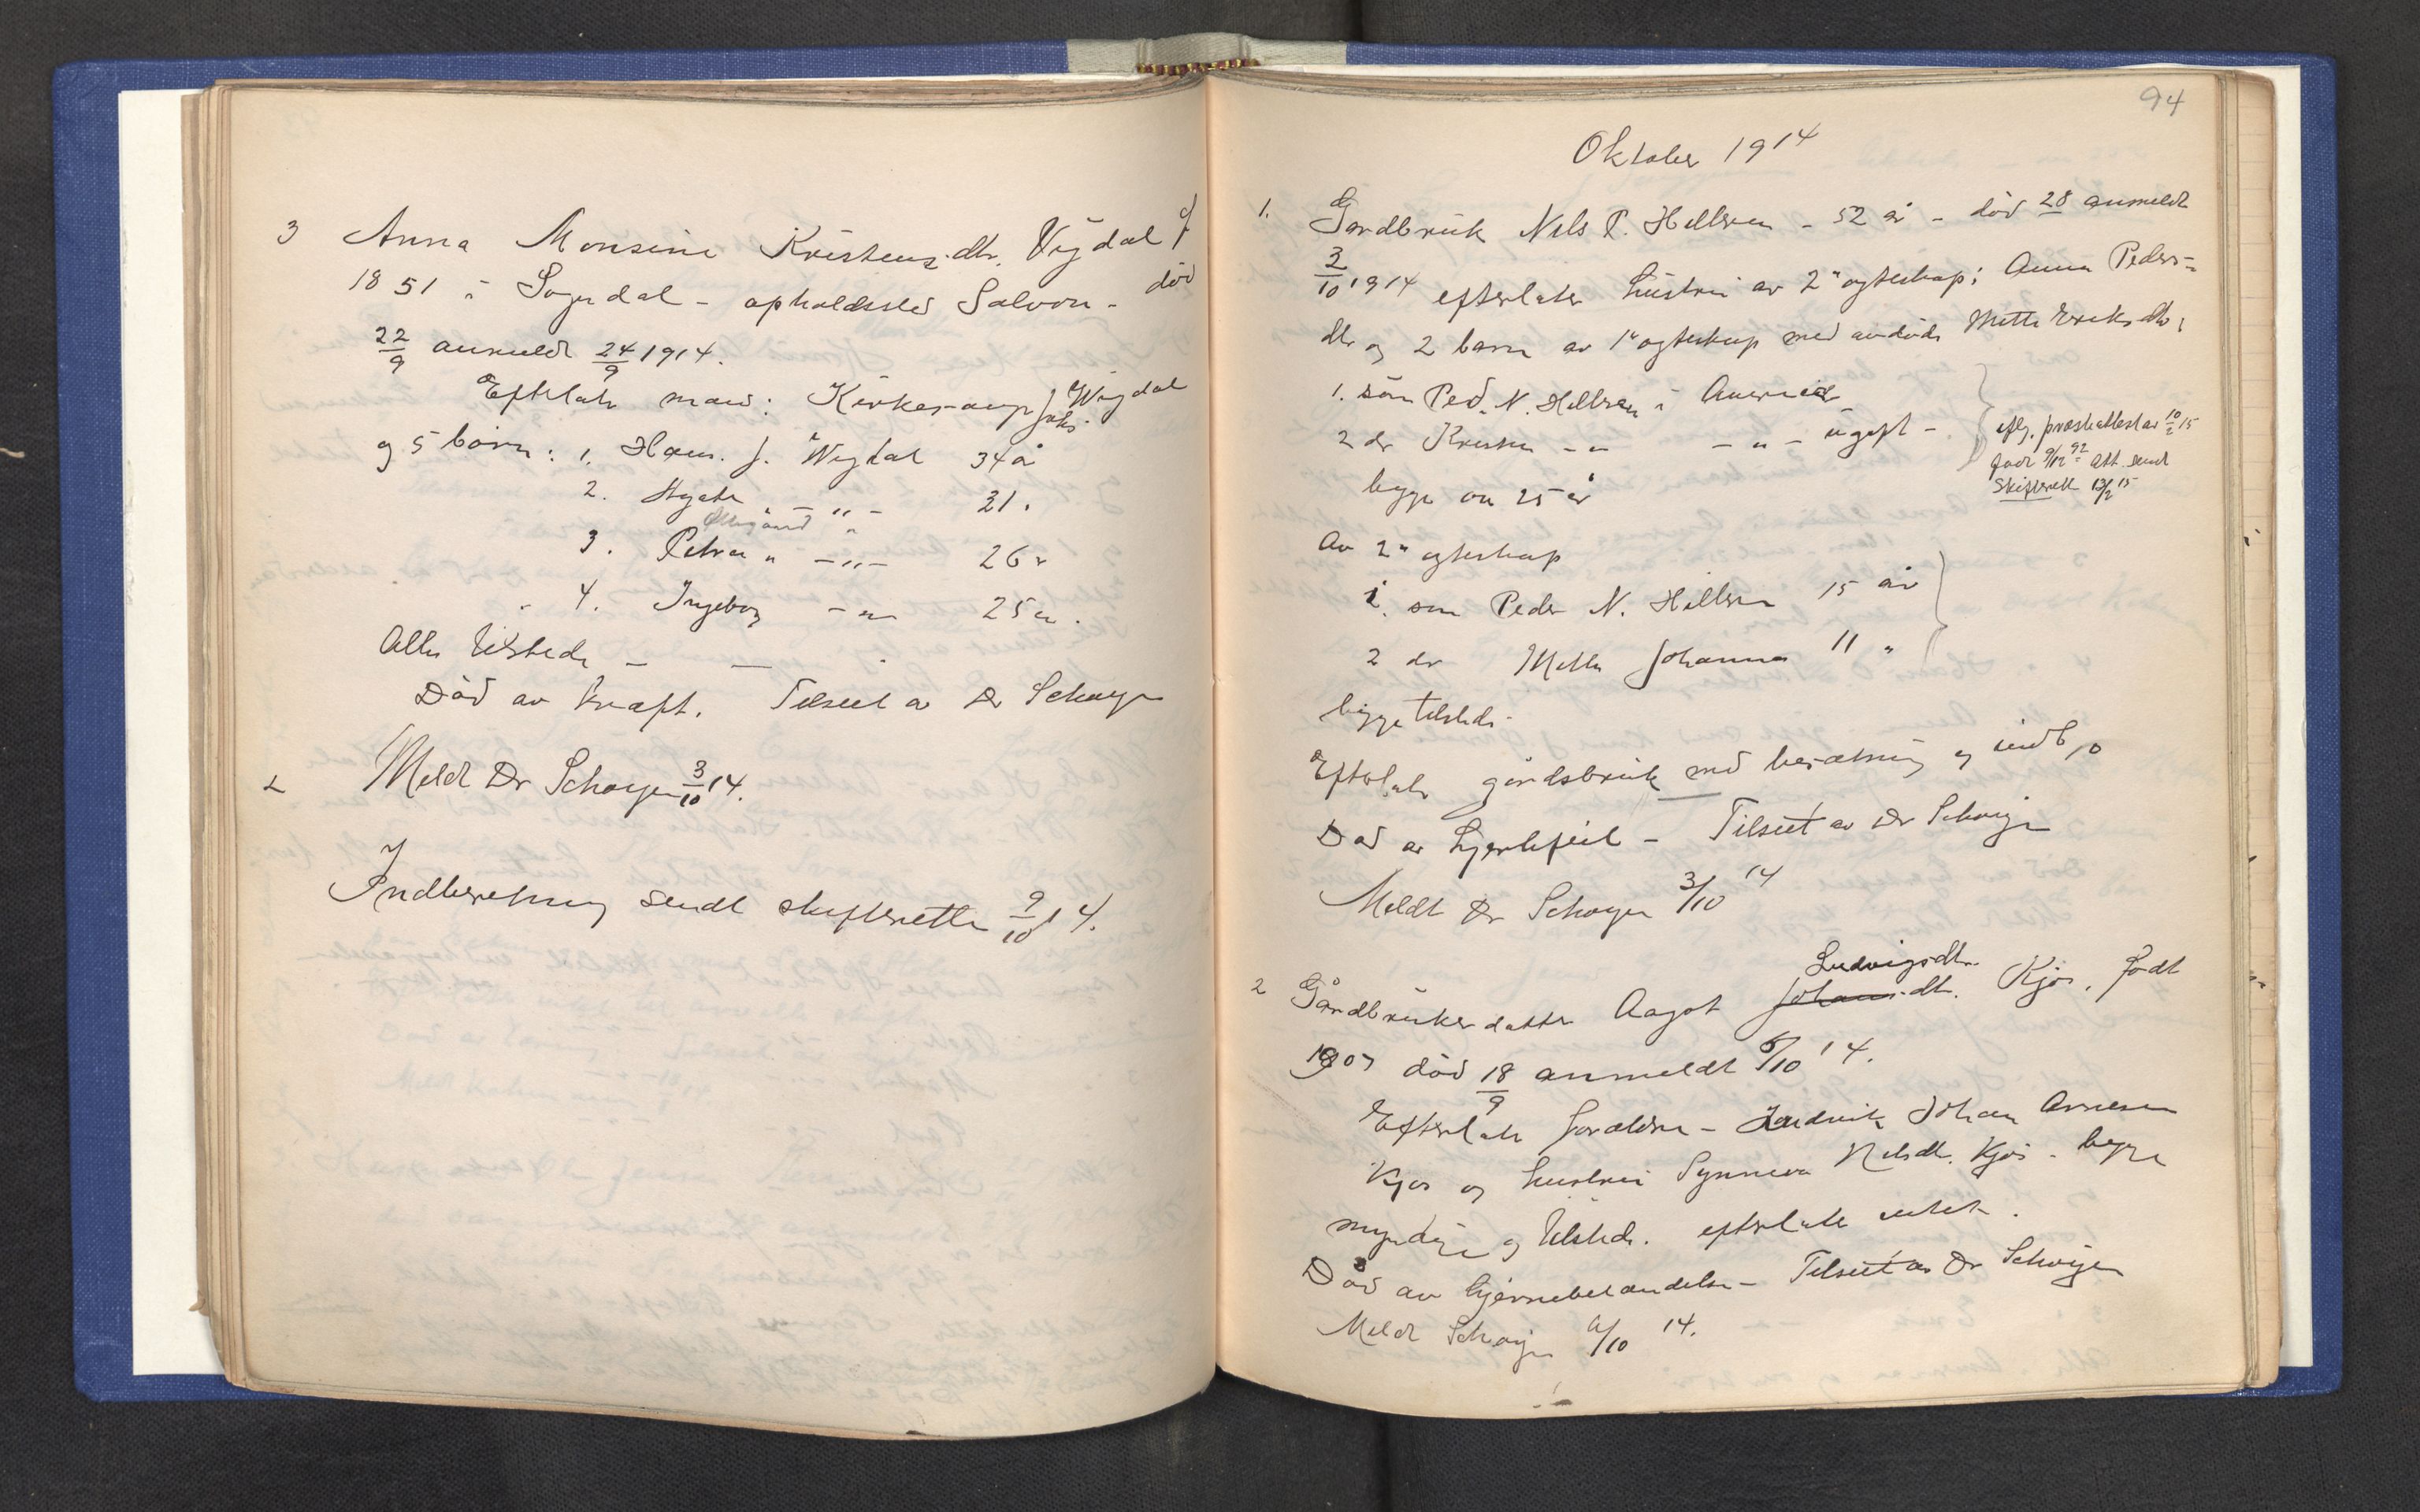 3 Anna Monsine Kristens.dtr. Vigdal f
1851 i Sogndal - opholdssted Solvorn - død
22/9 anmeldt 24/9 1914.
Efterlate mand: Kirkesanger Joh.s Wigdal
og 5 børn: 1. Hans. J. Wigdal 34 år
2. Agate - " - 31 "
Ollegaard "
3. Petra " - " - 26 "
4. Ingeborg - " - 25 "
Alle tilstede -
Død av kræft. Tilseet av Dr Schøyen
Meldt Dr Schøyen 3/10 14.
Indberetning sendt skifteretten 9/10 14.
94
Oktober 1914
1. Gardbruk Nils P. Hillsren - 52 år - død 28 anmeldt
3/10 1914 efterlater hustru av 2" ægteskap: Anna Peders-
dtr og 2 barn av 1" ægteskap med avdøde Mette Eriksdtr:
1. søn Ped. N. Hillsren i Amerika
2 dr Kristn - " - " - ugift -
begge over 25 år
eflg. præsteattest av 10/2 15
født 9/12 92 att. sendt
Skifterett 13/2 15
Av 2" ægteskap
1. søn Peder N. Hillsren 15 år
2 dr Mette Johanna 11 "
begge tilstede.
Efterlate gårdsbruk med besætning og indbo
Død av hjertefeil - Tilseet av Dr Schøyen
Meldt Dr Schøyen 3/10 14
2 Gårdbruker datter Aagot Johansdtr. Ludvigsdtr. Kjøs, født
1907 død 18/9 anmeldt 6/10 14.
Efterlate forældre - Ludvik Johan Arnesen
Kjøs og hustru Synneva Nilsdtr. Kjøs - begge
myndige og tilstede. efterlate intet.
Død av hjernebetændelse - Tilseet av Dr Schøyen
Meldt Schøyen 6/10 14.